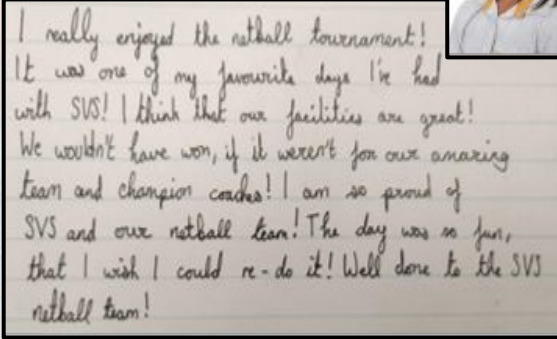 I really enjoyed the netball tournament!
It was one of my favourite days I've had
with SVS! I think that our facilities are great!
We wouldn't have won, if it weren't for our amazing
team and champion coaches! I am so proud of
SVS and our netball team! The day was so fun,
that I wish I could re-do it! Well done to the SVS
netball team!